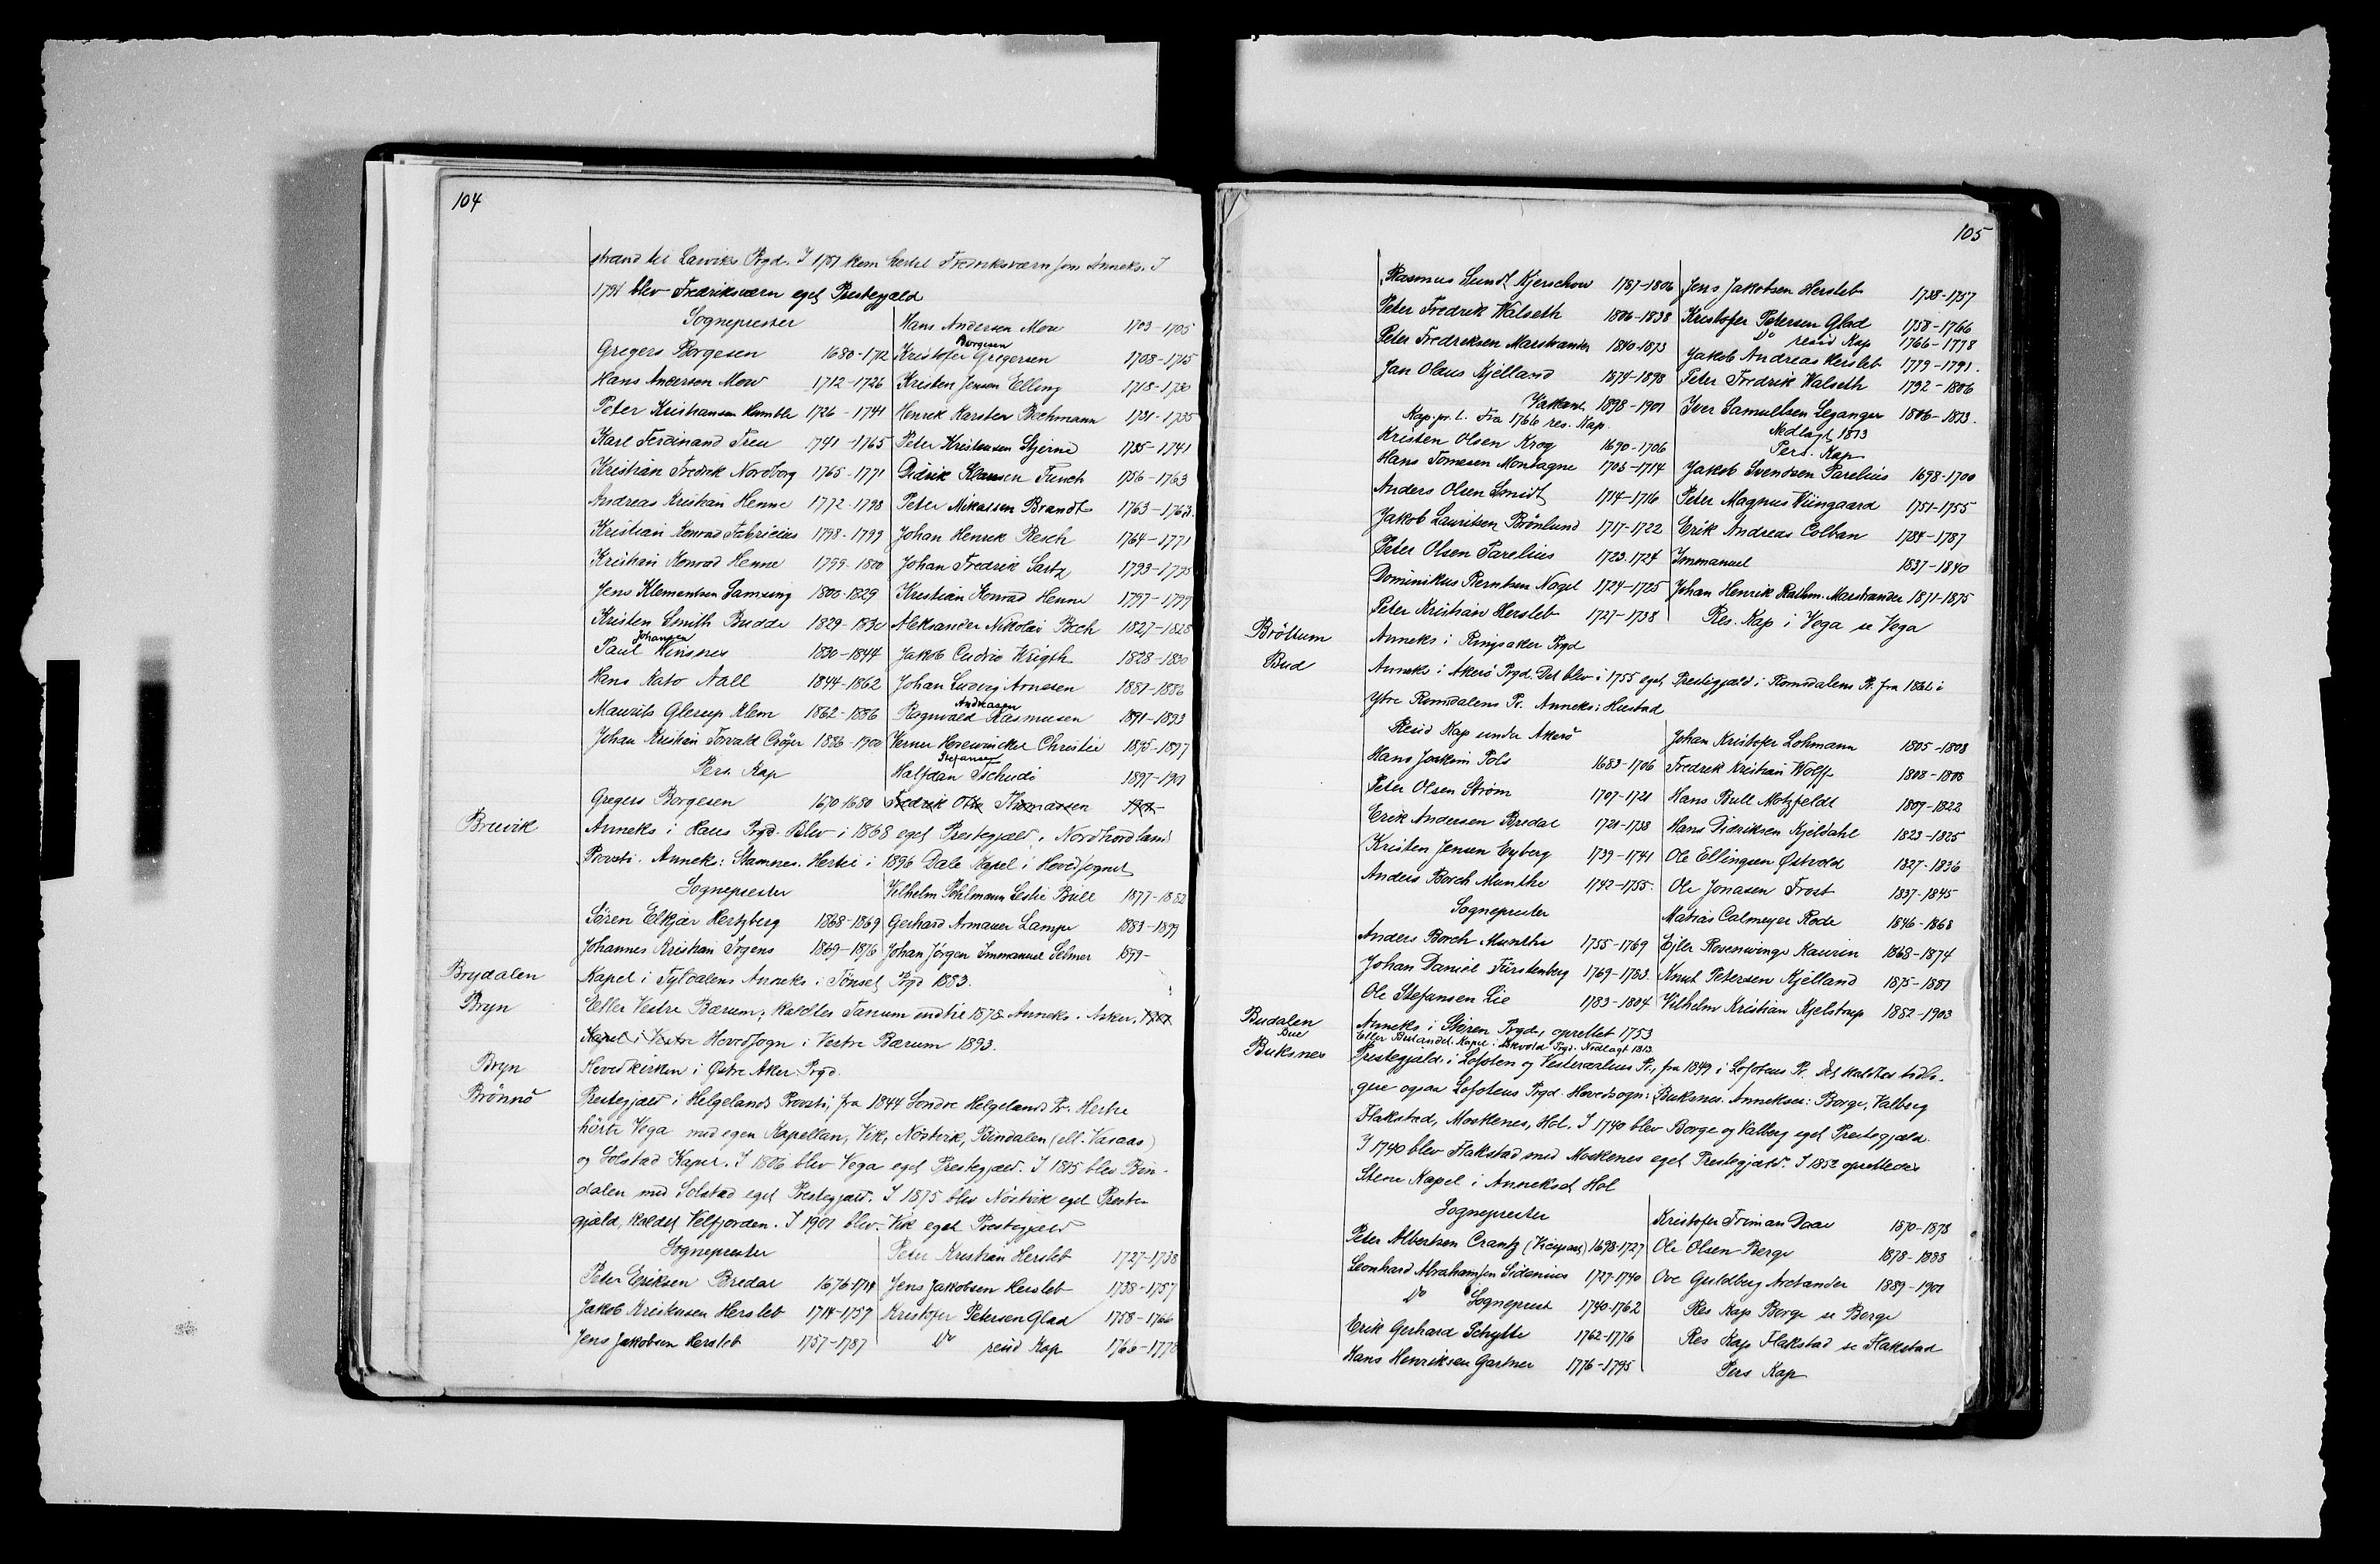 104
strand til Larviks Prgd. I 1757 kom hertil Fredriksværn som Anneks. I
1794 blev Fredriksværn eget Prestegjæld
Sogneprester
Gregers Borgesen 1680-1712
Hans Andersen Mow 1712-1726
Peter Kristiansen Humble 1726-1741
Karl Ferdinand Treu 1741-1765
Kristian Fredrik Nordborg 1765-1771
Andreas Kristian Henne 1772-1798
Kristian Konrad Fabricius 1798-1799
Kristian Konrad Henne 1799-1800
Jens Klementsen Gamsung 1800-1829
Kristen Smith Budde 1829-1830
Johansen
Paul Winsnes 1830-1844
Hans Kato Aall 1844-1862
Maurits Glerup Klem 1862-1886
Johan Kristian Torvald Crøger 1886-1900
Pers. Kap
Gregers Borgesen 1670-1680
Hans Andersen Mow 1703-1705
Borgesen
Kristofer Gregersen 1708-1715
Kristen Jensen Elling 1718-1730
Henrik Karsten Bochmann 1731-1735
Peter Kristensen Stjerne 1735-1741
Didrik Klausen Funch 1756-1763
Peter Mikalsen Brandt 1763-1763.
Johan Henrik Resch 1764-1771
Johan Fredrik Sartz 1793-1795
Kristian Konrad Henne 1797-1799
Aleksander Nikolai Bech 1827-1828
Jakob Cudrio Wrigth 1828-1830
Johan Ludvig Arnesen 1881-1886
Andreasen
Ragnvald Rasmusen 1891-1893
Verner Hosewinckel Christie 1895-1897
Stefansen
Halfdan Tschudi 1897-1901
Fredrik Otto Thomassen 1901-
Bruvik Anneks i Haus Prgd. Blev i 1868 eget Prestegjæld i Nordhordland
Provsti. Anneks: Stamnes. Hertil i 1896 Dale Kapel i Hovedsognet
Sognepresster
Søren Elkjær Hertzberg 1868-1869
Johannes Kristian Irgens 1869-1876
Vilhelm Pohlmann Leslie Bull 1877-1882
Gerhard Armauer Lampe 1883-1899
Johan Jörgen Immanuel Selmer 1899-
Brydalen Kapel i Tyldalens Anneks i Tönset Prgd 1883.
Bryn Eller Vestre Bærum, kaldtes Tanum indtil 1878 Anneks i Asker.
Kapel i Vestre Hovedsogn i Vestre Bærum 1893.
Bryn Hovedkirken i Østre Aker Prgd.
Brönnö Prestegjæld i Helgelands Provsti, fra 1844 Söndre Helgelands Pr. Hertil
hörte Vega med egen Kapellan, Vik, Nöstvik, Bindalen (ell. Vasaas)
og Solstad Kapel. I 1806 blev Vega eget Prestegjæld. I 1815 blev Bin-
dalen med Solstad eget Prestegjæld. I 1875 blev Nöstvik eget Preste-
gjæld, kaldet Velfjorden. I 1901 blev Vik eget Prestegjæld
Sogneprester
Peter Eriksen Bredal 1676-1714
Jakob Kristensen Hersleb 1714-1757
Jens Jakobsen Hersleb 1757-1787
Peter Kristian Hersleb 1727-1738
Jens Jakobsen Hersleb 1738-1757
Kristofer Petersen Glad 1758-1766
Do resid Kap 1766-1778
105
Rasmus Lundt Kjerschow 1787-1806
Peter Fredrik Walseth 1806-1838
Peter Fredriksen Marstrander 1840-1873
Jan Olaus Kjelland 1874-1898
Vakant 1898-1901
Kap. pr. l. Fra 1766 res. Kap.
Kristen Olsen Krog 1690-1706
Hans Tomesen Montagne 1706-1714
Anders Olsen Smidt 1714-1716
Jakob Lauritsen Brönlund 1717-1722
Peter Olsen Parelius 1723-1724
Dominikus Berntsen Nagel 1724-1725
Peter Kristian Hersleb 1727-1738
Jens Jakobsen Hersleb 1738-1757
Kristofer Petersen Glad 1758-1766
Do resid Kap 1766-1778
Jakob Andreas Hersleb 1779-1791.
Peter Fredrik Walseth 1792-1806
Iver Samuelsen Leganger 1806-1813.
Nedlagt 1813
Pers. Kap
Jakob Svendsen Parelius 1698-1700
Peter Magnus Wiingaard 1751-1755
Erik Andreas Colban 1784-1787
Immanuel 1837-1840
Johan Henrik Rathm. Marstrander 1871-1875
Res. Kap i Vega se Vega
Bröttum Anneks i Ringsaker Prgd
Bud Anneks i Akerö Prgd. Det blev i 1755 eget Prestegjæld i Romsdalens Pr. fra 1861 i
Ytre Romsdalens Pr. Anneks: Hustad
Resid Kap under Akerö
Hans Joakim Pols 1683-1706
Peter Olsen Ström 1707-1721
Erik Andersen Bredal 1721-1738
Kristen Jensen Eyberg 1739-1741
Anders Borch Munthe 1742-1755.
Sogneprester
Anders Borch Munthe 1755-1769
Johan Daniel Fürstenberg 1769-1783.
Ole Stefansen Lie 1783-1804
Johan Kristofer Lohmann 1805-1808
Fredrik Kristian Wolff 1808-1808
Hans Bull Motzfeldt 1809-1822
Hans Didriksen Kjeldahl 1823-1825
Ole Ellingsen Østvold 1827-1836
Ole Jonasen Frost 1837-1845
Matias Calmeyer Rode 1846-1868
Ejler Rosenvinge Kaurin 1868-1874
Knut Petersen Kjelland 1875-1881
Vilhelm Kristian Kjelstrup 1882-1903
Budalen Anneks i Stören Prgd, oprettet 1753
Bue Eller Buelandet. Kapel i Askvold Prgd. Nedlagt 1813.
Buksnes Prestegjæld i Lofoten og Vesteraalens Pr., fra 1849 i Lofotens Pr. Det kaldtes tidli-
gere ogsaa Lofotens Prgd. Hovedsogn: Buksnes. Annekser: Borge, Valberg
Flakstad, Moskenes, Hol. I 1740 blev Borge og Valberg eget Prestegjæld.
I 1740 blev Flakstad med Moskenes eget Prestegjæld. I 1852 oprettedes
Stene Kapel i Annekset Hol
Sogneprester
Peter Albertsen Crantz (Vicepast) 1698-1727
Leonhard Abrahamsen Sidenius 1727-1740
Do Sogneprest 1740-1762
Erik Gerhard Schytte 1762-1776
Hans Henriksen Gartner 1776-1795
Kristofer Friman Daae 1870-1878
Ole Olsen Berge 1878-1888
Ove Guldberg Arctander 1889-1901
Res Kap Borge se Borge
Res Kap Flakstad se Flakstad
Pers Kap